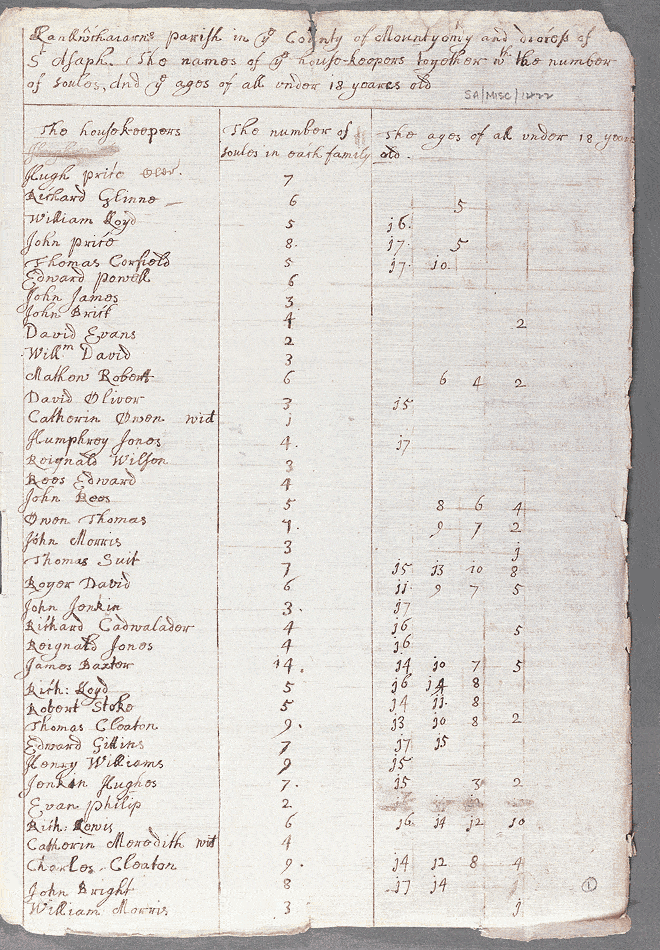 Llanllwchaiarne parish in ye County of Mountgomry and diocess of
St Asaph. The names of ye house-keepers together wth the number
of soules, And ye ages of all under 18 yeares old
SA/MISC/1222
The housekeepers The number of soules in each family The ages of all under 18 yeare old.
Hugh price 7
Richard Glinne 6 5
William lloyd 5 j6.
John price 8. j7. 5
Thomas Corfield 5 j7. j0.
Edward Powell 6
John James 3
John Brist 4 2
David Evans 2
Willm David 3
Mathew Robert 6 6 4 2
David Oliver 3 j5
Catherin Owen wid j
Humphrey Jones 4. j7
Reignald Wilson 3
Rees Edward 4
John Rees 5 8 6 4
Owen Thomas 7. 9 7 2
John Morris 3 j
Thomas Suit 7 j5 j3 10 8
Roger David 6 jj. 9 7 5
John Jenkin 3. j7
Richard Cadwalader 4 j6 5
Reignald Jones 4 j6
James Baxter 14. j4 j0 7 5
Rich: lloyd 5 j6 j4 8
Robert Stoke 5 j4 jj. 8
Thomas Cleaton 9. j3 j0 8 2
Edward Gittins 7 j7 j5
Henry Williams 9 j5
Jenkin Hughes 7. j5 3 2
Evan Philip 2
Rich: Lewis 6 j6. j4 j2 j0
Catherin Meredith wid 4
Charles Cleaton 9. j4 j2 8 4
John Bright 8 j7 j4 j
William Morris 3 j
1